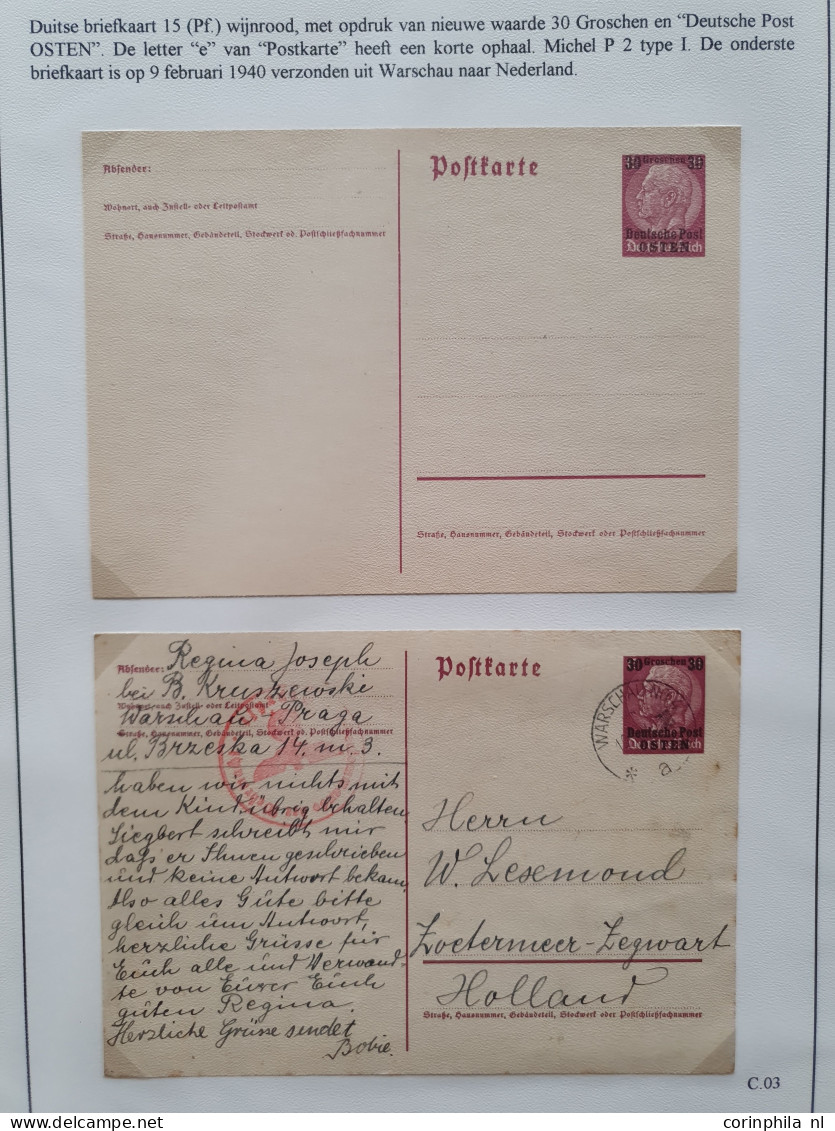 Duitse briefkaart 15 (Pf.) wijnrood, met opdruk van nieuwe waarde 30 Groschen en “Deutsche Post
OSTEN”. De letter “e” van “Postkarte” heeft een korte ophaal. Michel P 2 type I. De onderste
briefkaart is op 9 februari 1940 verzonden uit Warschau naar Nederland.
Absender:
Wohnort, auch Zustell- oder Leitpostamt
Straße, Hausnummer, Gebäudeteil, Stockwerk od. Postschließfachnummer
Postkarte
30 Groschen 30
Deutsche Post
OSTEN
Straße, Hausnummer, Gebäudeteil, Stockwerk oder Postschließfachnummer
Absender: Regina Joseph
bei B. Kruszewski
Wohnort, auch Zustell- oder Leitpostamt
Warschau-Praga
Straße, Hausnummer, Gebäudeteil, Stockwerk od. Postschließfachnummer
ul. Brzeska 14. m. 3.
haben wir nichts mit
dem Kind übrig behalten
Siegbert schreibt mir
dass er Ihnen geschrieben
und keine Antwort bekam.
Also alles Gute bitte
gleich um Antwort,
herzliche Grüsse für
Euch alle und Verwand-
te von Eurer Euch
guten Regina.
Herzliche Grüsse sendet
Bobie.
Postkarte
30 Groschen 30
Deutsche Post
OSTEN
WARSCHAU
a
Herrn
W. Lesemond
Zoetermeer-Zegwart
Holland
Straße, Hausnummer, Gebäudeteil, Stockwerk oder Postschließfachnummer
C.03
www.corinphila.nl